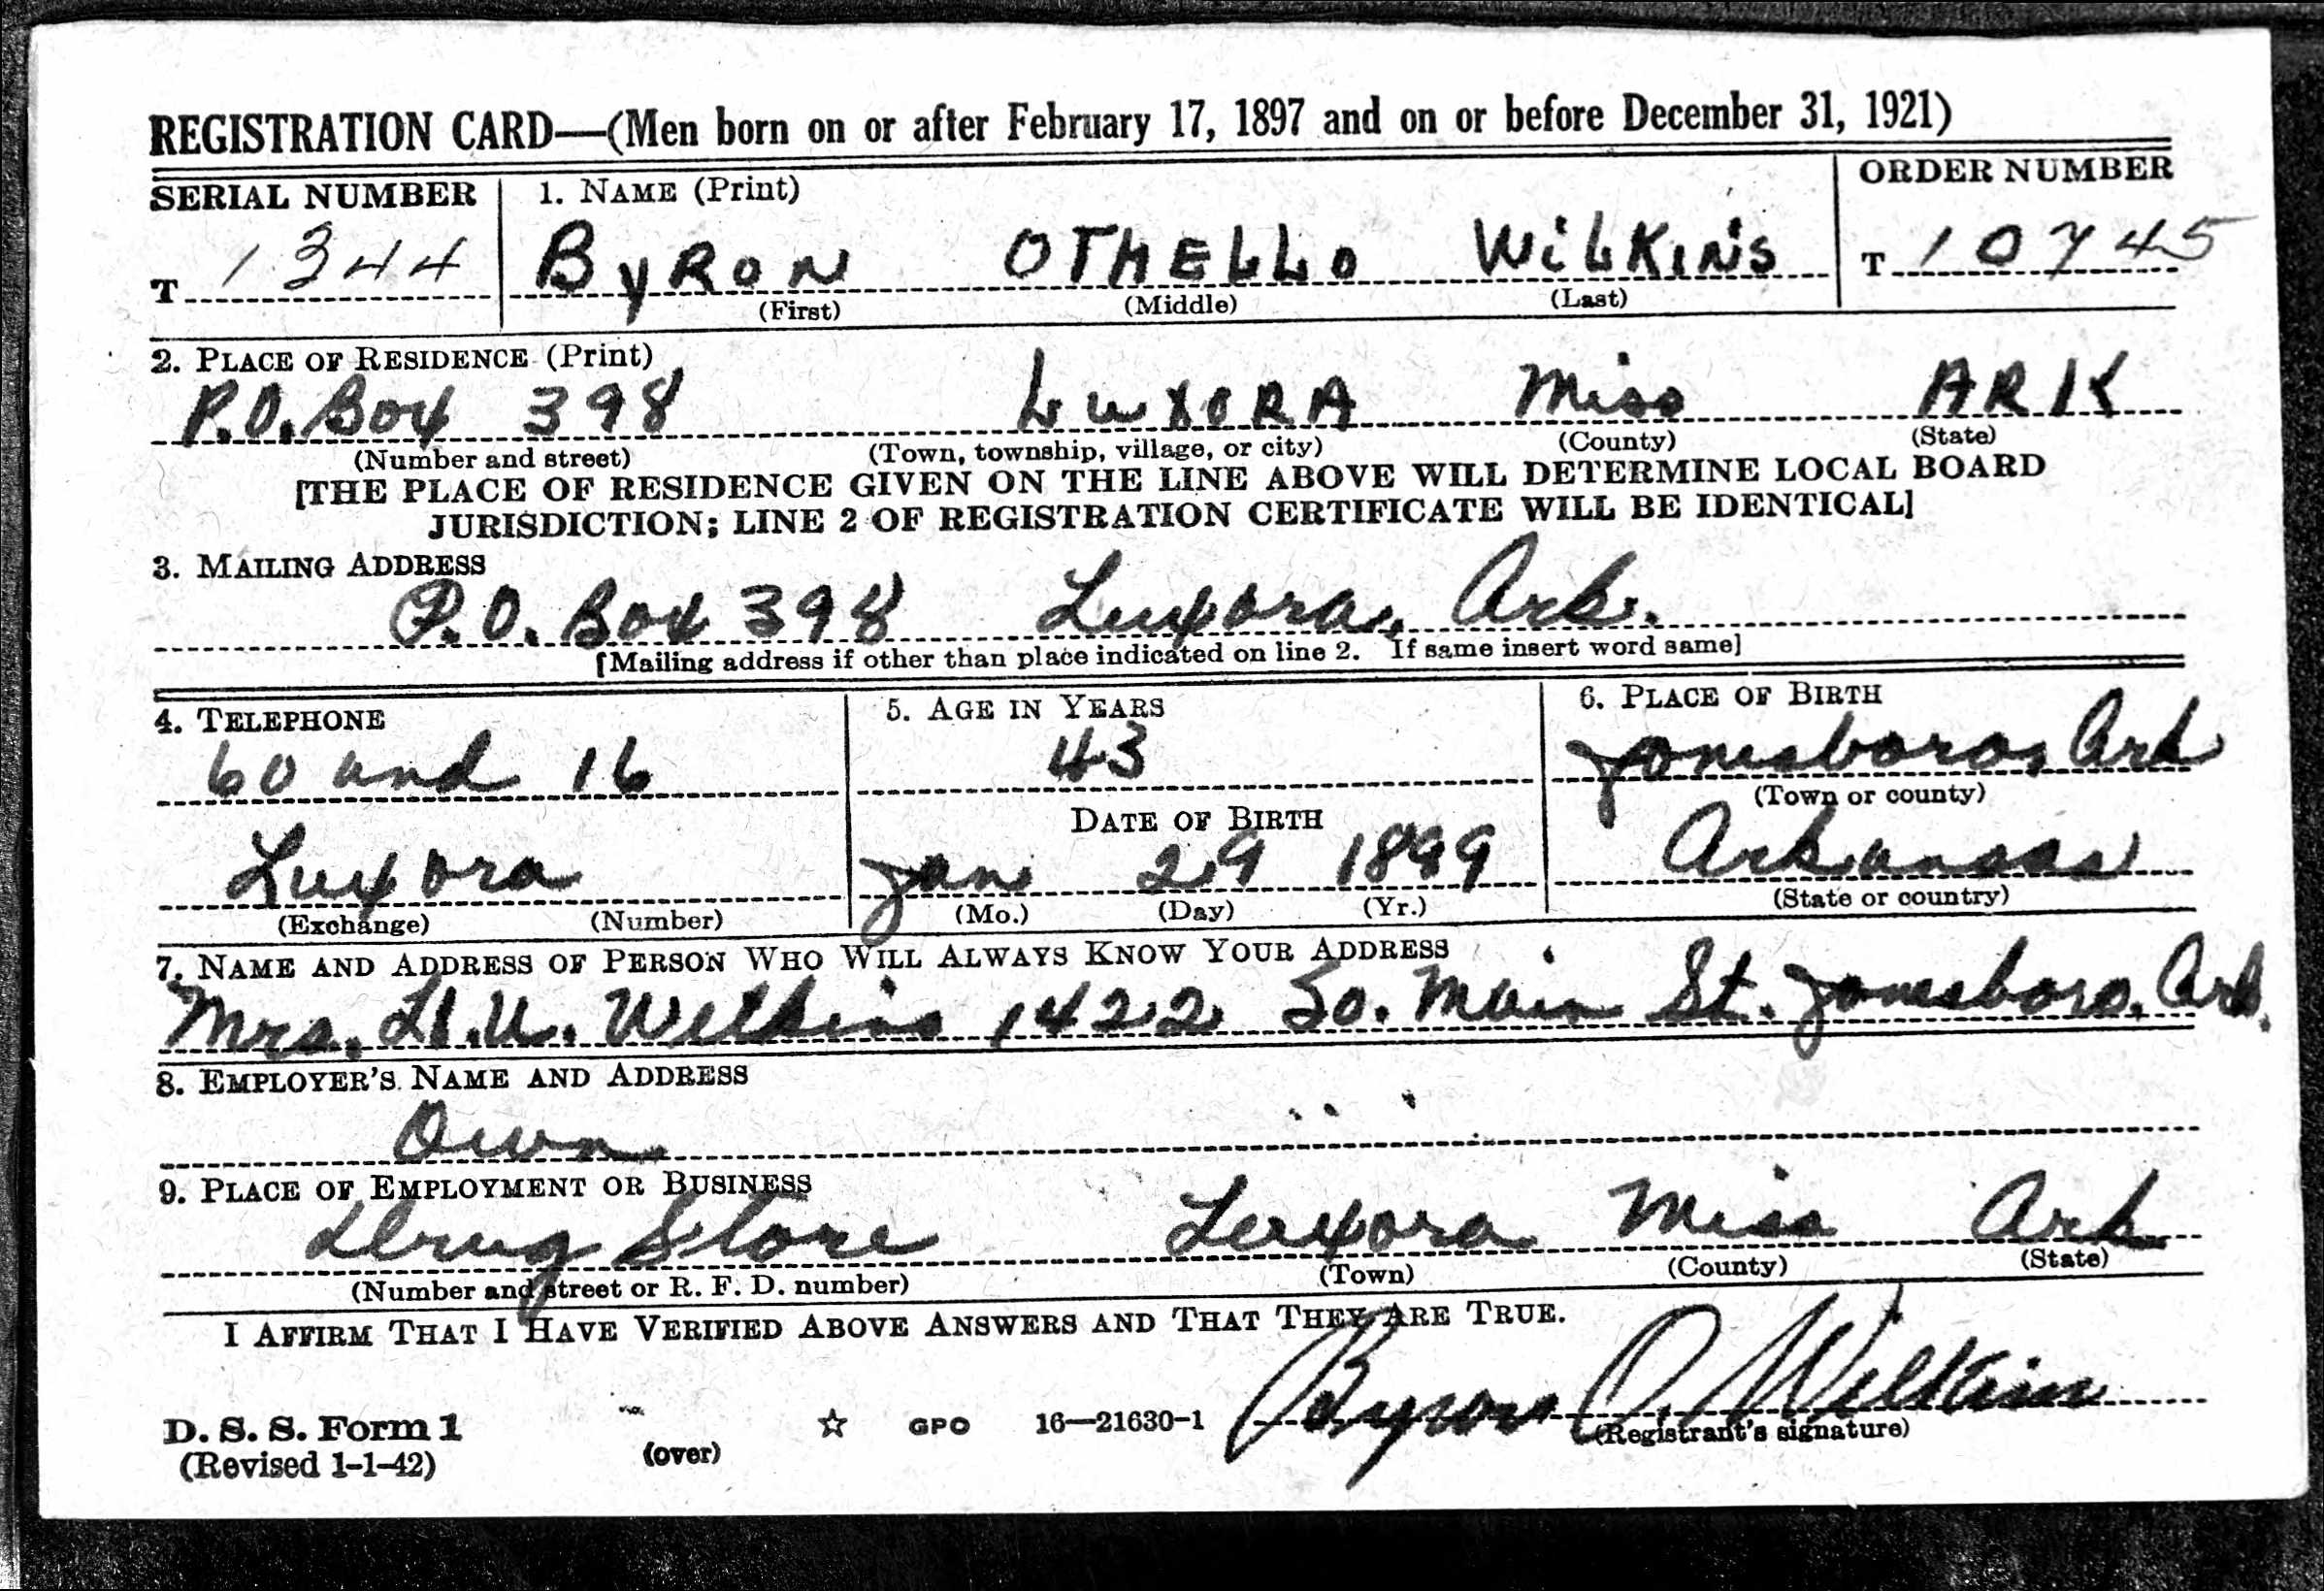 REGISTRATION CARD—(Men born on or after February 17, 1897 and on or before December 31, 1921)
SERIAL NUMBER 1. NAME (Print) ORDER NUMBER
T 1344 BYRON OTHELLO WILKINS T 10745
(First) (Middle) (Last)
2. PLACE OF RESIDENCE (Print)
P.O. Box 398 LUXORA Miss ARK
(Number and street) (Town, township, village, or city) (County) (State)
[THE PLACE OF RESIDENCE GIVEN ON THE LINE ABOVE WILL DETERMINE LOCAL BOARD
JURISDICTION; LINE 2 OF REGISTRATION CERTIFICATE WILL BE IDENTICAL]
3. MAILING ADDRESS
P.O. Box 398 Luxora, Ark.
[Mailing address if other than place indicated on line 2. If same insert word same]
4. TELEPHONE 5. AGE IN YEARS 6. PLACE OF BIRTH
60 and 16 43 Jonesboro, Ark
(Town or county)
DATE OF BIRTH
Luxora Jan 29 1899 Arkansas
(Exchange) (Number) (Mo.) (Day) (Yr.) (State or country)
7. NAME AND ADDRESS OF PERSON WHO WILL ALWAYS KNOW YOUR ADDRESS
Mrs. Wilkins 1422 So. Main St. Jonesboro, Ark.
8. EMPLOYER'S NAME AND ADDRESS
Own
9. PLACE OF EMPLOYMENT OR BUSINESS
Drug Store Luxora Miss Ark
(Number and street or R. F. D. number) (Town) (County) (State)
I AFFIRM THAT I HAVE VERIFIED ABOVE ANSWERS AND THAT THEY ARE TRUE.
Byron O. Wilkins
D. S. S. Form 1 ☆ GPO 16—21630-1 (Registrant's signature)
(Revised 1-1-42) (over)